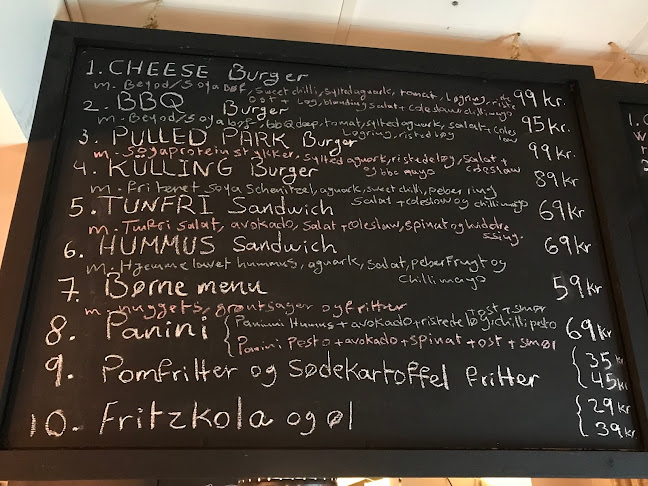 1. CHEESE Burger 99 kr.
m. Beyod/soyabøf, sweetchilli, syltedaguark, tomat, løgring, riste
ost + løg, blanding salat + coleslaw chillimayo
2. BBQ Burger 95 kr.
m. Beyod/soyabøf, bbq dep, tomat, sylted aguark, salat + coles
Løgring, risted løg law
3. PULLED PARK Burger 99 kr
m. søyaprotein stykker, sylted aguark, ristede løg, salat +
og bbq mayo coleslaw
4. KULLING Burger 89 kr
m. fritenet soya Schenitzel, aguark, sweet chilli, peber ring
salat + coleslaw og chillimayo
5. TUNFRI Sandwich 69 kr
m. Tunfri salat, avokado, salat + coleslaw, spinat og hviddre
ssing.
6. HUMMUS Sandwich 69 kr
m. Hjemme lavet hummus, aguark, salat, peberfrugt og
Chilli mayo
7. Børne menu 59 kr
m. nuggets, grøntsager og fritter
8. Panini 69 kr
ost + smør
Panini Humus + avokado + ristede løg + chilli pesto
Panini Pesto + avokado + spinat + ost + smør
9. Pomfritter og Sødekartoffel fritter 35 kr
45 kr
10. Fritzkola og øl 29 kr
39 kr
1.